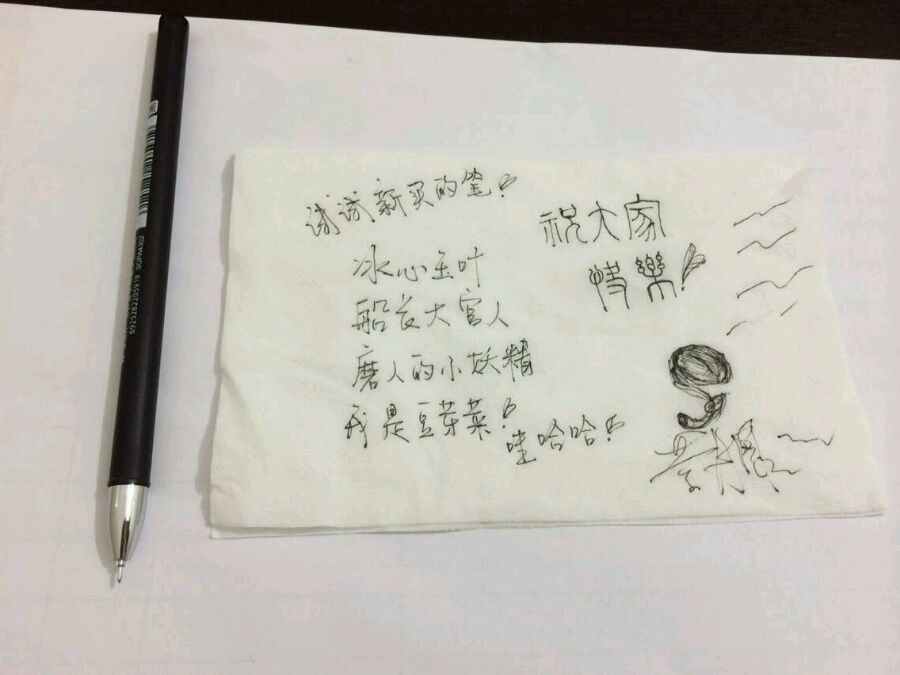 试试新买的笔!
冰心玉叶
船长大官人
磨人的小妖精
我是豆芽菜!
哇哈哈!
祝大家
快樂!
6925282205919 BGPR4302